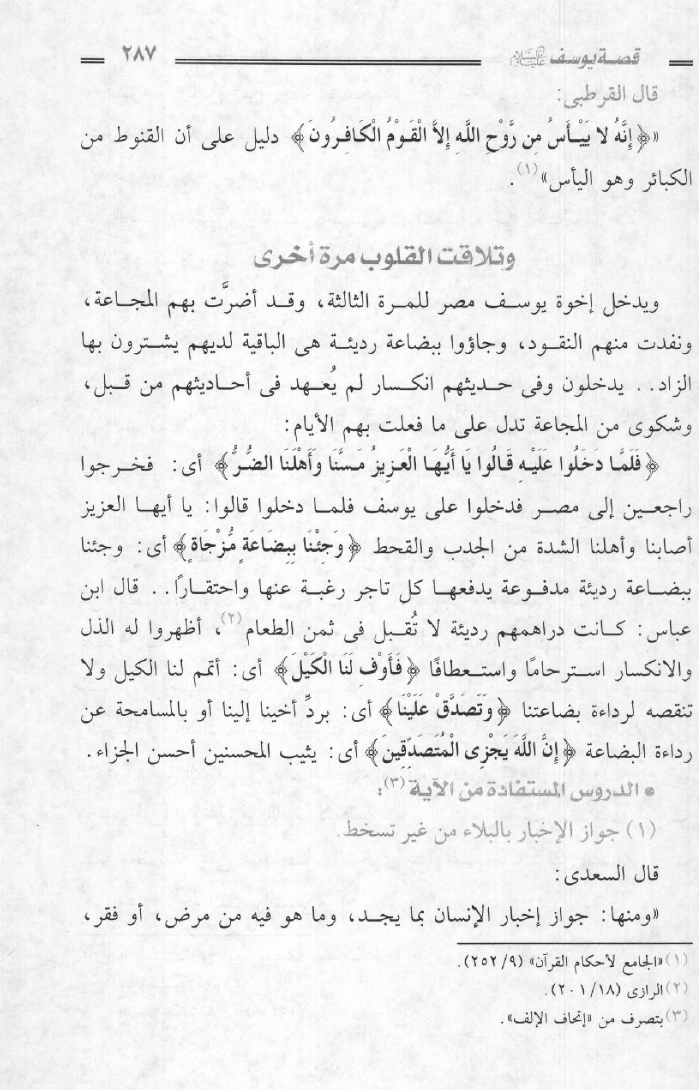 قصة يوسف عليه السلام ٢٨٧
قال القرطبى:
«﴿إِنَّهُ لا يَيْأَسُ مِن رَّوْحِ اللَّهِ إِلاَّ الْقَوْمُ الْكَافِرُونَ﴾ دليل على أن القنوط من
الكبائر وهو اليأس»(١).
وتلاقت القلوب مرة أخرى
ويدخل إخوة يوسف مصر للمرة الثالثة، وقد أضرَّت بهم المجاعة،
ونفدت منهم النقود، وجاؤوا ببضاعة رديئة هى الباقية لديهم يشترون بها
الزاد.. يدخلون وفى حديثهم انكسار لم يُعهد فى أحاديثهم من قبل،
وشكوى من المجاعة تدل على ما فعلت بهم الأيام:
﴿فَلَمَّا دَخَلُوا عَلَيْهِ قَالُوا يَا أَيُّهَا الْعَزِيزُ مَسَّنَا وَأَهْلَنَا الضُّرُّ﴾ أى: فخرجوا
راجعين إلى مصر فدخلوا على يوسف فلما دخلوا قالوا: يا أيها العزيز
أصابنا وأهلنا الشدة من الجدب والقحط ﴿وَجِئْنَا بِبِضَاعَةٍ مُّزْجَاةٍ﴾ أى: وجئنا
ببضاعة رديئة مدفوعة يدفعها كل تاجر رغبة عنها واحتقارًا.. قال ابن
عباس: كانت دراهمهم رديئة لا تُقبل فى ثمن الطعام(٢)، أظهروا له الذل
والانكسار استرحامًا واستعطافًا ﴿فَأَوْفِ لَنَا الْكَيْلَ﴾ أى: أتمم لنا الكيل ولا
تنقصه لرداءة بضاعتنا ﴿وَتَصَدَّقْ عَلَيْنَا﴾ أى: بردِّ أخينا إلينا أو بالمسامحة عن
رداءة البضاعة ﴿إِنَّ اللَّهَ يَجْزِى الْمُتَصَدِّقِينَ﴾ أى: يثيب المحسنين أحسن الجزاء.
* الدروس المستفادة من الآية(٣):
(١) جواز الإخبار بالبلاء من غير تسخط.
قال السعدى:
«ومنها: جواز إخبار الإنسان بما يجد، وما هو فيه من مرض، أو فقر،
(١) «الجامع لأحكام القرآن» (٩/ ٢٥٢).
(٢) الرازى (١٨/ ٢٠١).
(٣) بتصرف من «إتحاف الإلف».